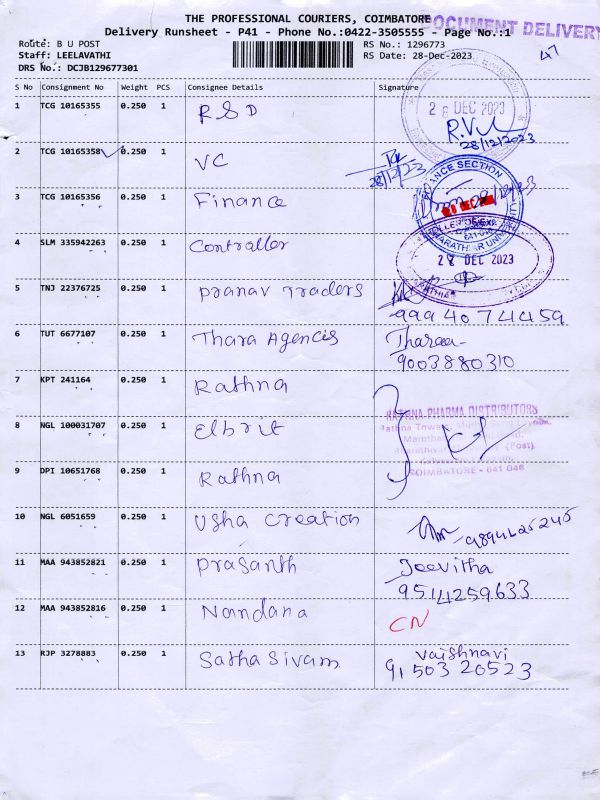 THE PROFESSIONAL COURIERS, COIMBATORE
DOCUMENT DELIVERY
Delivery Runsheet - P41 - Phone No.:0422-3505555 - Page No.:1
Route: B U POST
RS No.: 1296773
Staff: LEELAVATHI
RS Date: 28-Dec-2023
47
DRS No.: DCJB129677301
S No Consignment No Weight PCS Consignee Details Signature
1 TCG 10165355 0.250 1 RSD
28 DEC 2023
28/12/2023
2 TCG 10165358 0.250 1 VC
28/12/23
FINANCE SECTION
3 TCG 10165356 0.250 1 Finance
BHARATHIAR UNIVERSITY
641-046
4 SLM 335942263 0.250 1 Controller
28 DEC 2023
5 TNJ 22376725 0.250 1 Pranav Traders
9994074459
6 TUT 6677107 0.250 1 Thara Agencies Tharaa
9003880310
7 KPT 241164 0.250 1 Rathna
RATHNA PHARMA DISTRIBUTORS
8 NGL 100031707 0.250 1 Elbrit
Rathna Towers,
(Post)
COIMBATORE - 641 046
9 DPI 10651768 0.250 1 Rathna
10 NGL 6051659 0.250 1 Usha Creation
11 MAA 943852821 0.250 1 Prasanth Jeevitha
9514259633
12 MAA 943852816 0.250 1 Nandana CN
13 RJP 3278883 0.250 1 Satha Sivam Vaishnavi
91503 20523